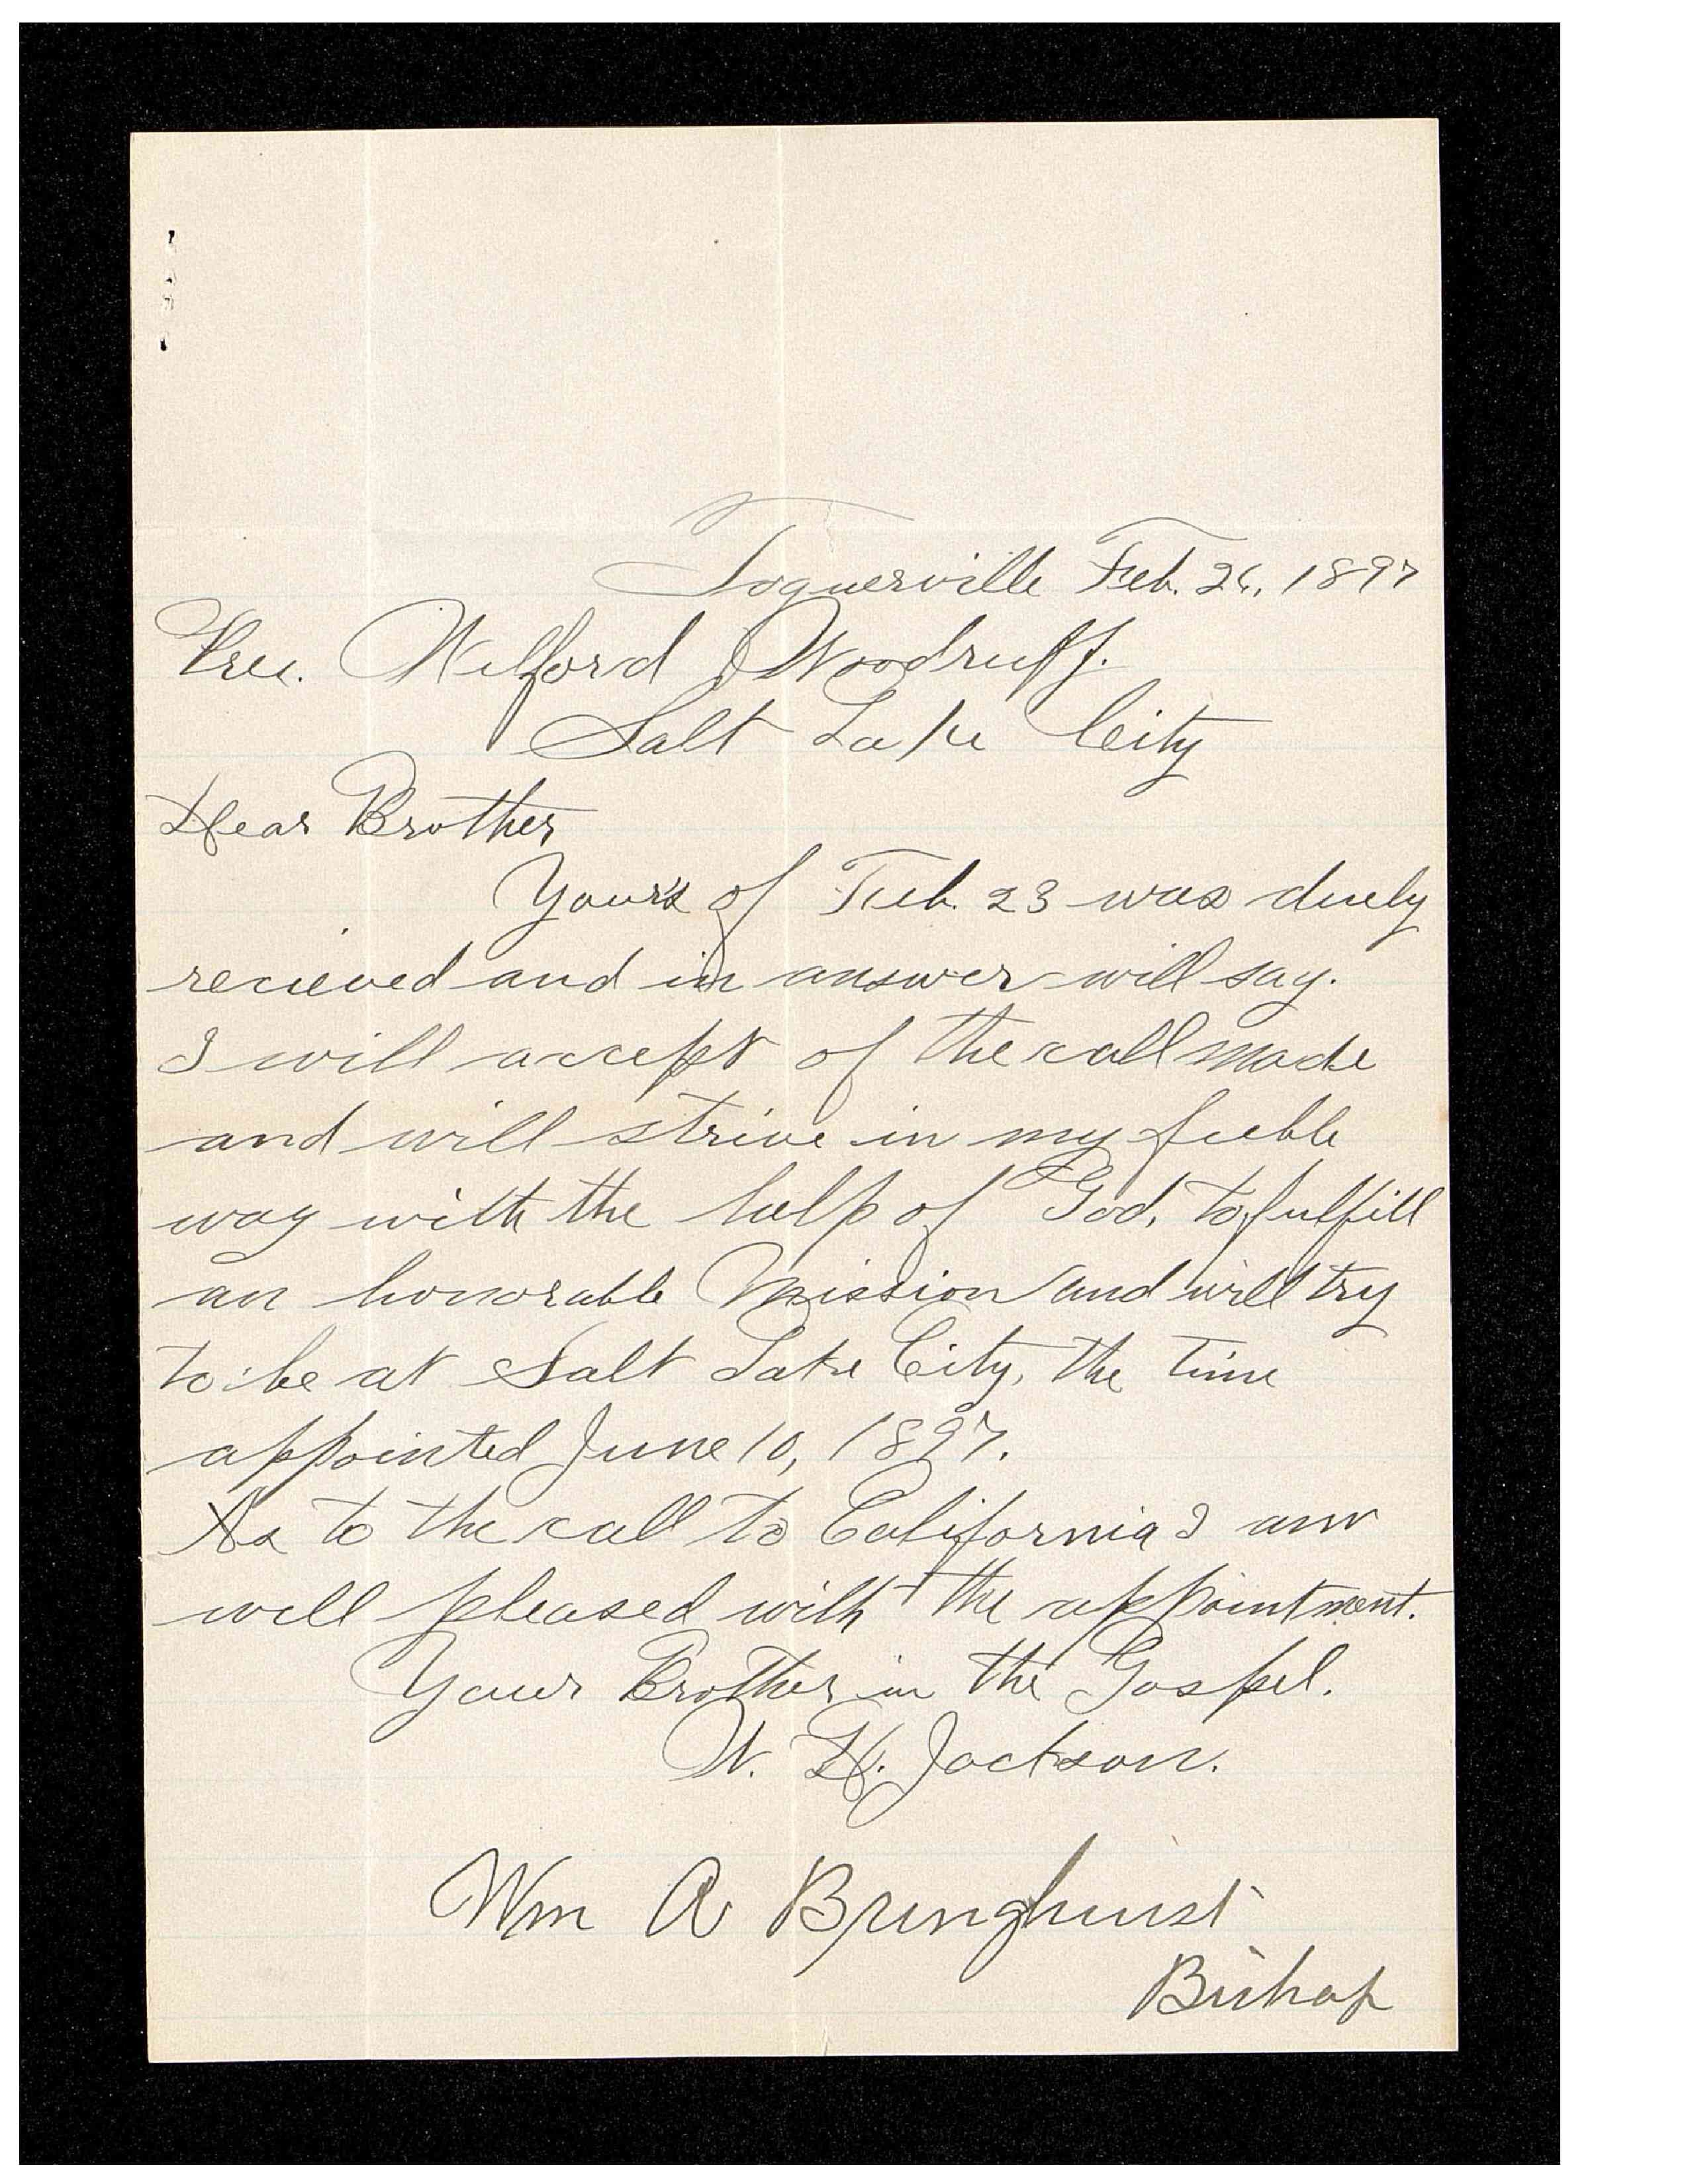 Toquerville Feb. 26, 1897
Pres. Wilford Woodruff.
Salt Lake City
Dear Brother
Your's of Feb. 23 was duely
recieved and in answer will say.
I will accept of the call made
and will strive in my feeble
way with the help of God, to fulfill
an honorable Mission and will try
to be at Salt Lake City, the time
appointed June 10, 1897.
As to the call to California I am
well pleased with the appointment.
Your Brother in the Gospel.
W. H. Jackson.
Wm A Bringhurst
Bishop